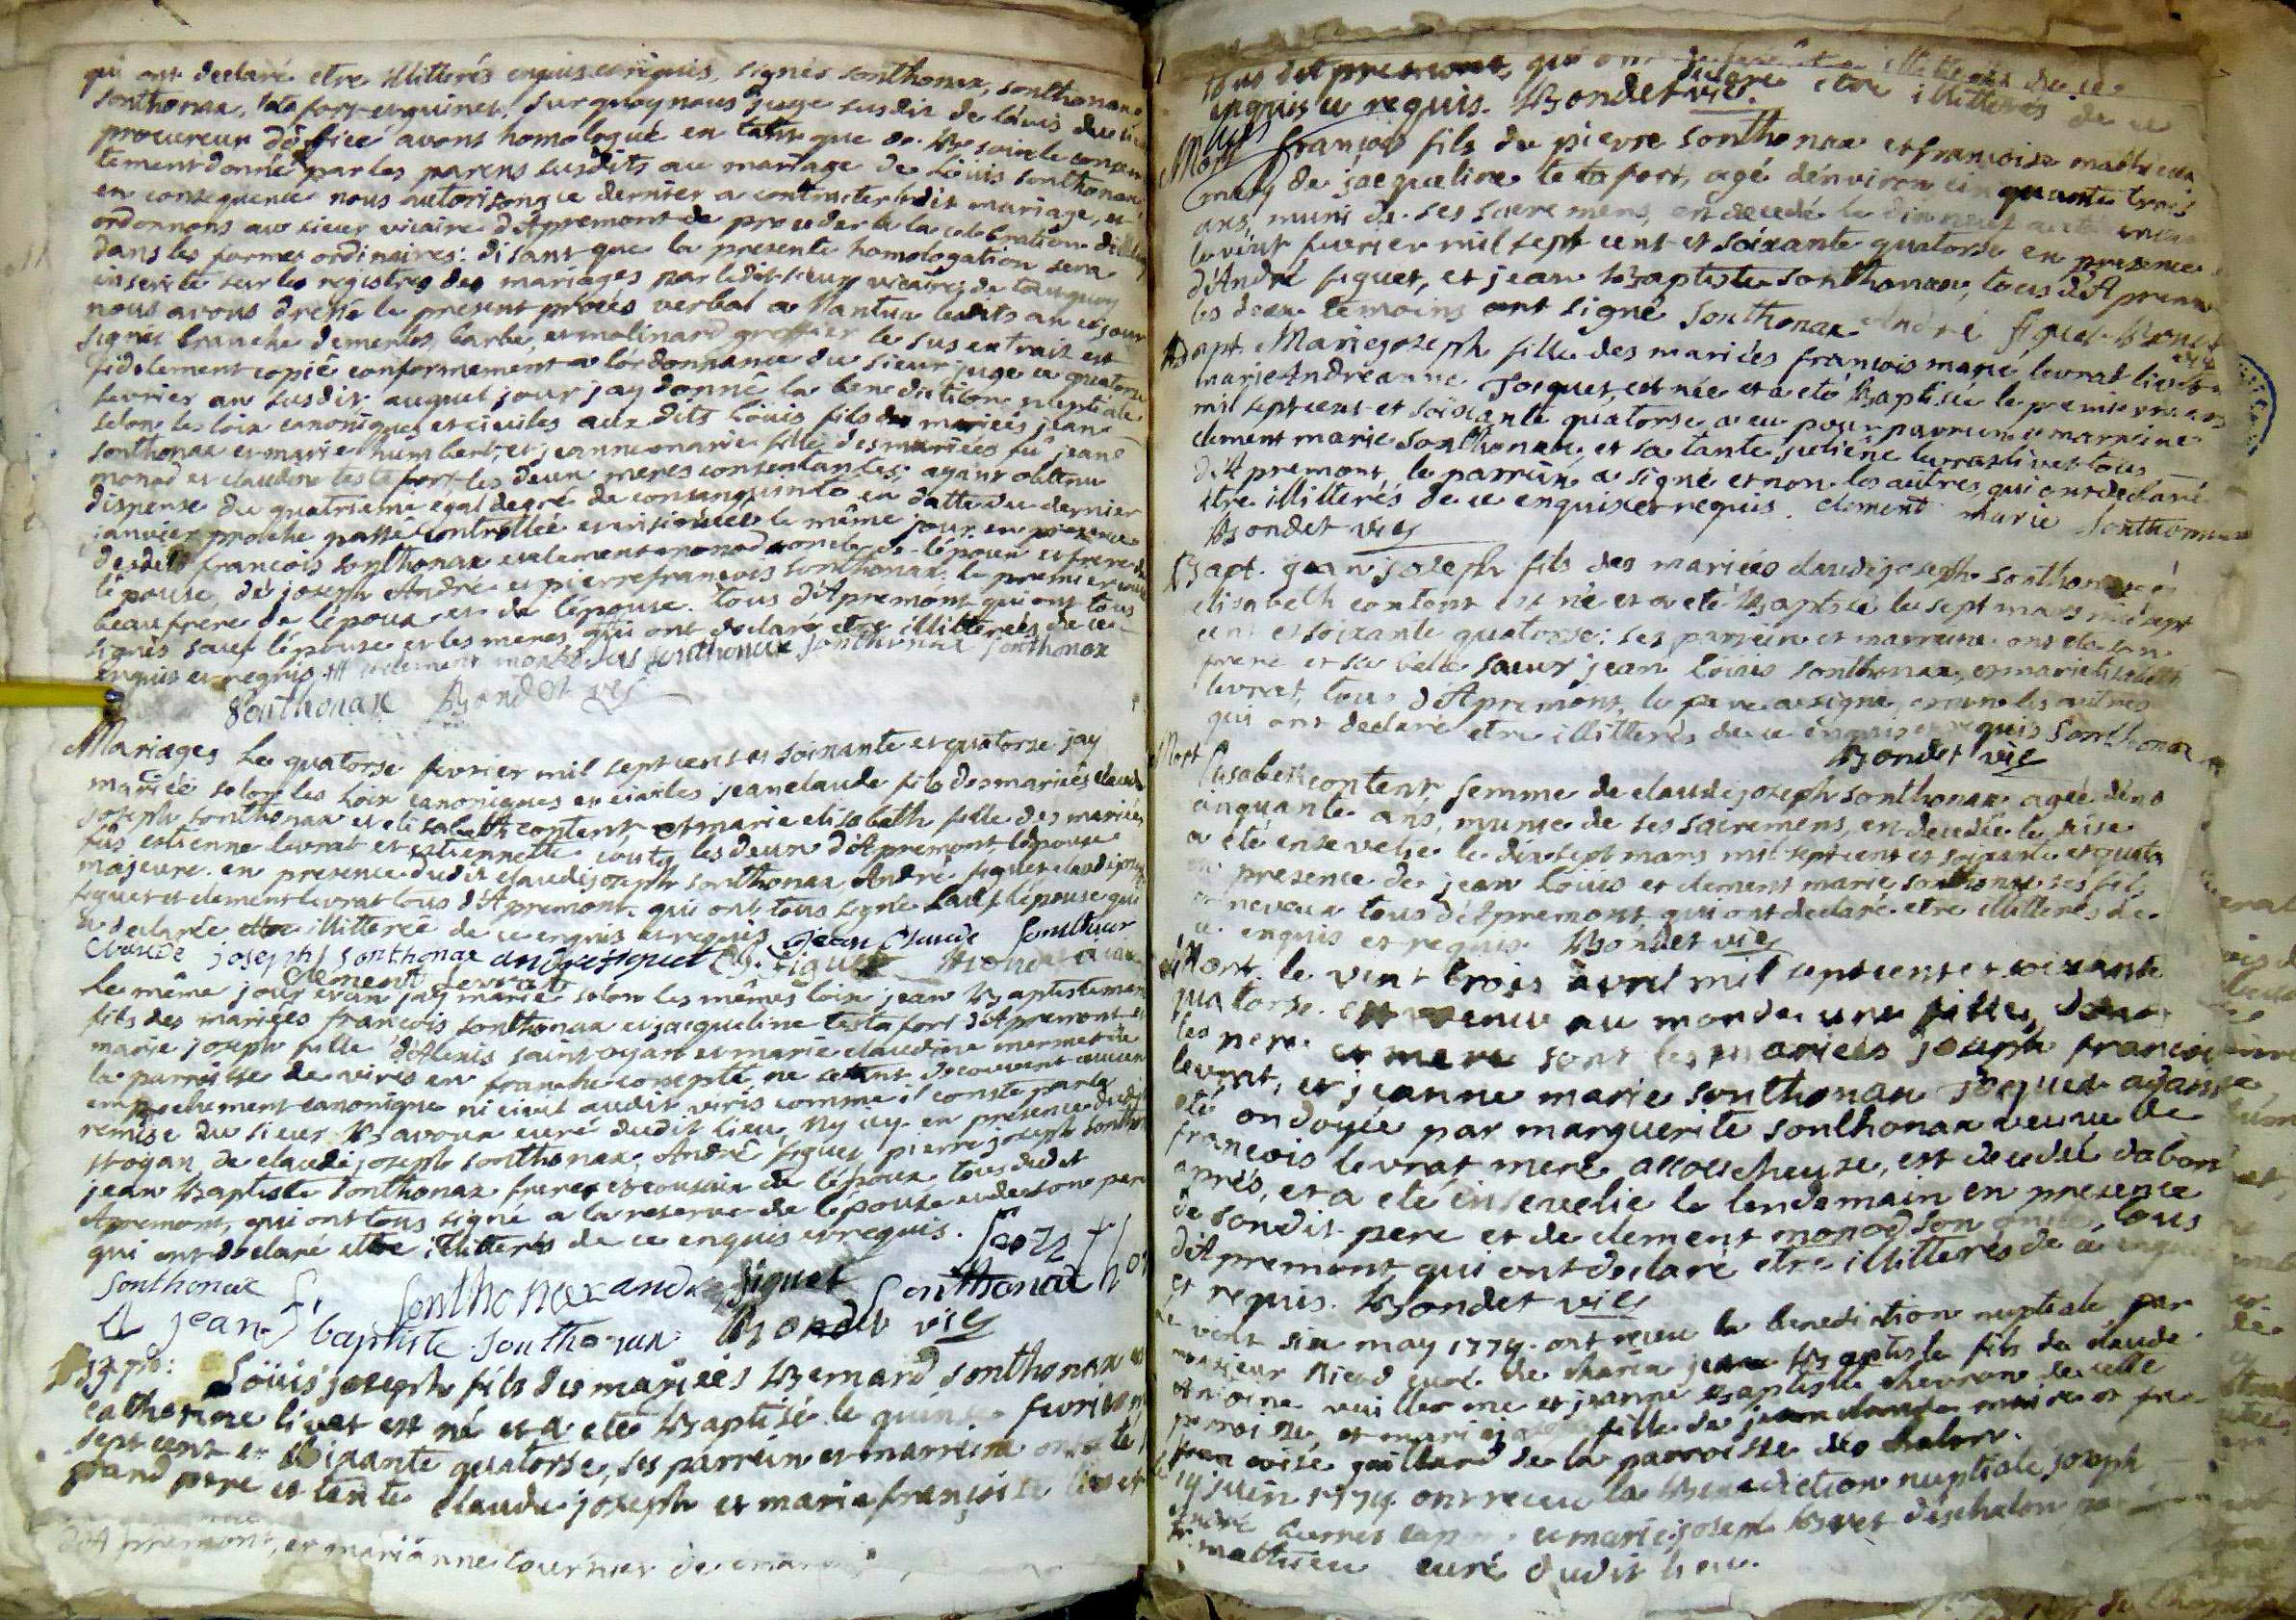 qui ont declaré etre illitterés enquis et requis, signés sonthonax, sonthonax
sonthonax, tatafort et guinet. sur quoy nous juge susdit de l'avis du
procureur d'office avons homologué en tant que de besoin le consen
tement donné par les parens susdits au mariage de Louis sonthonax
en consequence nous autorisons ce dernier a contracter ledit mariage, et
ordonnons au sieur vicaire d'Apremont de proceder a la celebration
dans les formes ordinaires: disant que la presente homologation sera
inscrite sur les registres des mariages par ledit sieur vicaire, de tout quoy
nous avons dressé le present procés verbal a Nantua lesdits an et jour
signés branche dementes, barbe, et molinard greffier le sus extrait est
fidelement copié conformement a l'ordonnance du sieur juge ce quatorse
fevrier an susdit auquel jour jay donné la benediction nuptiale
selon les loix canoniques et civiles aux dits Louis fils des mariées jean
sonthonax et marie humbert, et jeanne marie fille des mariées fû jean
monod et claudine testafort les deux meres consentantes; ayant obtenu
dispense du quatrieme égal degré de consanguinité en datte du dernier
janvier proche passé controllée et insinuée le même jour en presence
desdits francois sonthonax et clement monod oncle de l'époux et frere de
l'épouse, de joseph André et pierre francois sonthonax: le premier
beaufrere de l'époux et de l'épouse. tous d'Apremont qui ont tous
signés sauf l'épouse et les meres, qui ont declaré etre illitterés de ce
enquis et requis. clement sonthonax sonthonax sonthonax
Sonthonax Bondet vic
Mariages Le quatorse fevrier mil sept cent et soixante et quatorse jay
mariée selon les loix canoniques et civiles jean claude fils des mariées claude
joseph sonthonax et elisabeth content et marie elisabeth fille des mariées
fûs estienne levrat et estiennette les deux d'Apremont l'épouse
majeure. en presence dudit claude joseph sonthonax André figuet
figuet et clement levrat tous d'Apremont. qui ont tous signé sauf l'épouse qui
a declarée etre illitterée de ce enquis et requis jean Claude Sonthonax
Claude joseph sonthonax andre figuet figuet
clement levrat
Le même jour et an jay marié selon les mêmes loix jean Baptiste
fils des mariées françois sonthonax et jacqueline testafort d'Apremont et
marie joseph fille d'Alexis saint oyan et marie claudine mermet de
la parroisse de viris en franche compté, ne setant decouvert aucun
empechement canonique ni civil audit viris comme il conste par la
remise du sieur Bavoux curé dudit lieu, ny icy en presence dudit
st oyan, de claude joseph sonthonax, André figuet, pierre joseph sonthonax
jean Baptiste Sonthonax freres et cousin de l'époux tous dudit
Apremont, qui ont tous signé a la reserve de l'épouse et de son pere
qui ont declaré etre illitterés de ce enquis et requis.
Sonthonax Sonthonax andre figuet Sonthonax
jean baptiste Sonthonax Bondet vic
Bapt: Loüis joseph fils des mariées Bernard sonthonax et
catherine livet est né et a eté Baptisé le quinse fevrier
sept cent et soixante quatorse, ses parrein et marreine ont eté
grand pere et tante claude joseph et marie françoise livet
d'Apremont, et marianne tournier
tous d'Apremont, qui ont declaré etre illitterés de ce
enquis et requis. Bondet vic
Mort françois fils de pierre sonthonax et francoise mathieu
mary de jacqueline testafort, agé d'environ cinquante trois
ans, muni de ses sacremens, en decedé le dix neuf
le vint fevrier mil sept cent et soixante quatorse en presence
d'André figuet, et jean Baptiste Sonthonax, tous d'Apremont
les deux temoins ont signé Sonthonax André figuet Bondet
Bapt. Marie joseph fille des mariées françois marie levrat livet
marie Andréanne Josquet, est née et a eté Baptisée le premier mars
mil sept cent et soixante quatorse, a eu pour parrein et marreine
clement marie Sonthonax, et sa tante juliene levrat livet tous
d'Apremont, le parrein a signé et non les autres, qui ont declaré
etre illitterés de ce enquis et requis. clement marie Sonthonax
Bondet vic
Bapt. jean joseph fils des mariées claude joseph sonthonax et
elisabeth content est né et a eté Baptisé le sept mars mil sept
cent et soixante quatorse: ses parrein et marreine ont eté son
frere et sa belle soeur jean Louis sonthonax, et marie elisabeth
levrat, tous d'Apremont, le pere a signé, et non les autres
qui ont declaré etre illitterés de ce enquis et requis Sonthonax
Bondet vic
Mort Elisabeth content femme de claude joseph sonthonax, agée d'en
cinquante ans, munie de ses sacremens, en decedée le seise
a eté ensevelie le dix sept mars mil sept cent et soixante et quatorse
en presence de jean Loüis et clement marie sonthonax ses fils
et neveux tous d'Apremont, qui ont declaré etre illitterés de
ce enquis et requis. Bondet vic
Mort. le vint trois avril mil sept cent et soixante
quatorse est venue au monde une fille, dont
les pere et mere sont les mariées joseph francois
levrat, et jeanne marie sonthonax josquet ayant
eté ondoyée par marguerite sonthonax veuve de
francois levrat mere accoucheuse, est decedée d'abord
aprés, et a eté ensevelie le lendemain en presence
de sondit pere et de clement monod son oncle, tous
d'Apremont qui ont declaré etre illitterés de ce enquis
et requis. Bondet vic
Le vint six may 1774. ont recu la benediction nuptiale par
monsieur curé de charix jean Baptiste fils de claude
antoine vuillerme et jeanne Baptiste chevron de cette
parroisse, et marie joseph fille de jean claude maire et fran
coise gaillard de la parroisse des chalon.
Le 14 juin 1774. ont recu la Benediction nuptiale joseph
André et marie joseph Bret d'eschalon
mathieu curé dudit lieu.